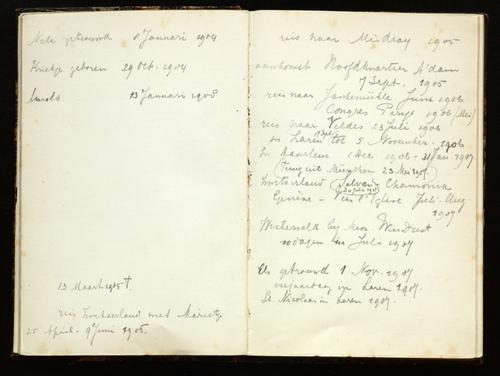 Nele getrouwd 8 Januari 1904
Krietje geboren 29 Oct. 1904
13 Januari 1905
13 Maart 1905 †
reis Zwitserland met Marietje
25 April - 9 Juni 1905.
reis naar Misdroy 1905
aankomst Hoofdkwartier A'dam
7 Sept. 1905
reis naar Juni 1906
Congres Parijs 1906 (Mei)
reis naar Veldes 23 Juli 1906
in Laren 17 Sept tot 5 November 1906
In Haarlem 1 Dec 1906 - 31 Jan. 1907
(terug uit München 23 Mei 1907)
Zwitserland Chamonix
Genève - Juli - Aug
1907
Westerveld bij
in Juli 1907
Els getrouwd 1 Nov. 1907
verjaardag in Laren 1907.
St. Nicolaas in Laren 1907.